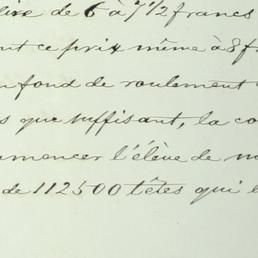 lire de 6 à 7 1/2 francs
nt ce prix même à 8 fr
u fond de roulement
s que suffisant, la co
mmencer l'élève de m
de 112500 têtes qui